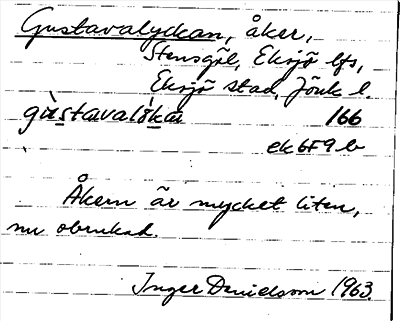 Gustavalyckan, åker,
Stensgöl, Eksjö lfs,
Eksjö stad, Jönk l.
gùstavalỳkan 166
ek 6F9 b
Åkern är mycket liten,
nu obrukad.
Inger Danielsson 1963.